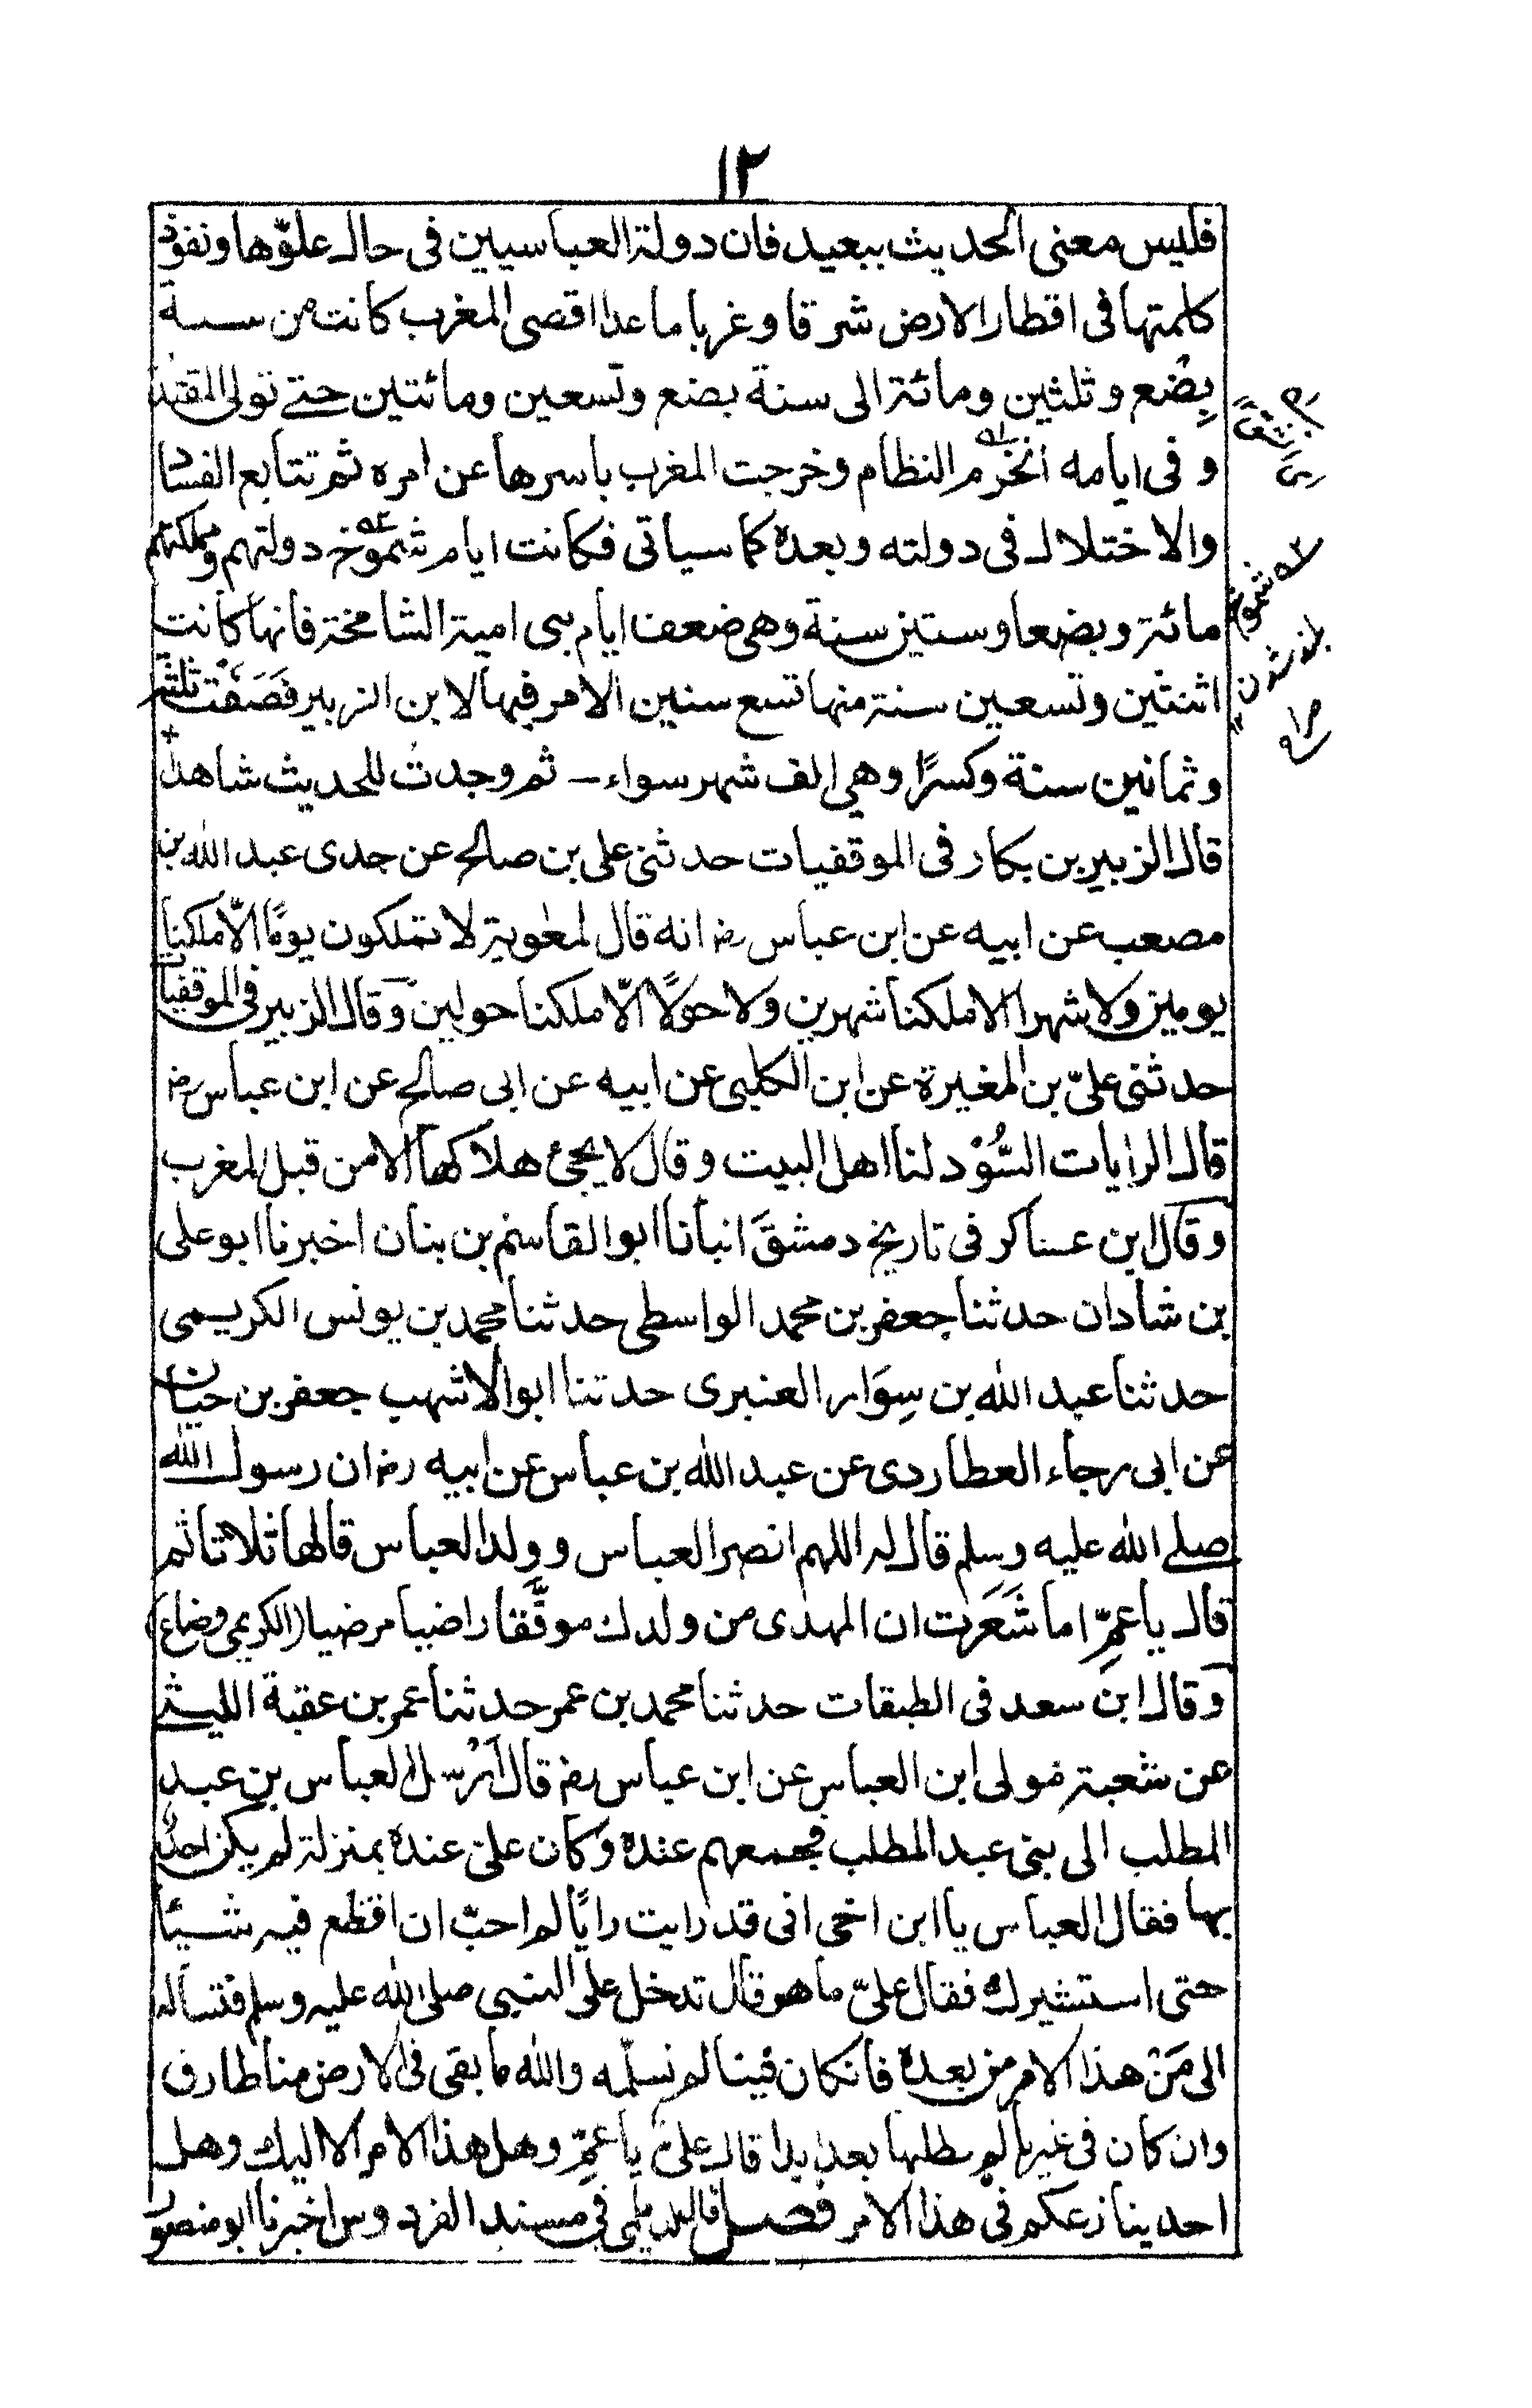 ١٢
فليس معنى الحديث ببعيد فان دولة العباسيين فى حال علوّها ونفوذ
كلمتها فى اقطار الارض شرقا وغربا ما عدا اقصى المغرب كانت من سنة
بِضْع وثلثين ومائة الى سنة بضع وتسعين ومائتين حتى تولى المقتدر
و فى ايامه انخرم النظام وخرجت المغرب باسرها عن امره ثم تتابع الفساد
والاختلال فى دولته وبعده كما سياتى فكانت ايام شموخ دولتهم ومملكتهم
مائة وبضعا وستين سنة وهى ضعف ايام بنى امية الشامخة فانها كانت
اثنتين وتسعين سنة منها تسع سنين الامر فيها لابن الزبير فَصَفَتْ ثلثة
وثمانين سنة وكسرًا وهى الف شهر سواء – ثم وجدتُ للحديث شاهدًا
قال الزبير بن بكار فى الموقفيات حدثنى على بن صالح عن جدى عبد الله بن
مصعب عن ابيه عن ابن عباس رض انه قال لمعٰوية لا تملكون يومًا الّا ملكنا
يومين ولا شهرا الا ملكنا شهرين ولا حولًا الّا ملكنا حولين وقال الزبير فى الموقفيات
حدثنى علىّ بن المغيرة عن ابن الكلبى عن ابيه عن ابى صالح عن ابن عباس رض
قال الرايات السُّوْد لنا اهل البيت وقال لا يجئ هلاكها الا من قبل المغرب
وقال ابن عساكر فى تاريخ دمشقَ انبأنا ابو القاسم بن بنان اخبرنا ابو على
بن شاذان حدثنا جعفر بن محمد الواسطى حدثنا محمد بن يونس الكريمى
حدثنا عبد الله بن سِوَار العنبرى حدثنا ابو الاشهب جعفر بن حيان
عن ابى رجاء العطاردى عن عبد الله بن عباس عن ابيه رض ان رسول الله
صلى الله عليه وسلم قال له اللهم انصر العباس وولد العباس قالها ثلاثا ثم
قال يا عمِّ اما شَعَرت ان المهدى من ولدك موفَّقا راضيا مرضيا (الكريمى وضاع)
وقال ابن سعد فى الطبقات حدثنا محمد بن عمر حدثنا عمر بن عقبة الليثى
عن شعبة مولى ابن العباس عن ابن عباس رض قال اَرْسل العباس بن عبد
المطلب الى بنى عبد المطلب فجمعهم عنده وكان علىّ عنده بمنزلة لم يكن احدٌ
بها فقال العباس يا ابن اخى انى قد رايت رايًا لم احبّ ان اقطع فيه شيئًا
حتى استشيرك فقال علىّ ما هو قال تدخل على النبى صلى الله عليه وسلم فتسأله
الى مَنْ هذا الامر من بعده فان كان فينا لم نسلّمه والله ما بقى فى الارض منا طارف
وان كان فى غيرنا لم نطلبها بعد ابدا قال علىّ يا عمِّ وهل هذا الامر الا اليك وهل
احد ينازعكم فى هذا الامر فصل قال الديلمى فى مسند الفردوس اخبرنا ابو منصور